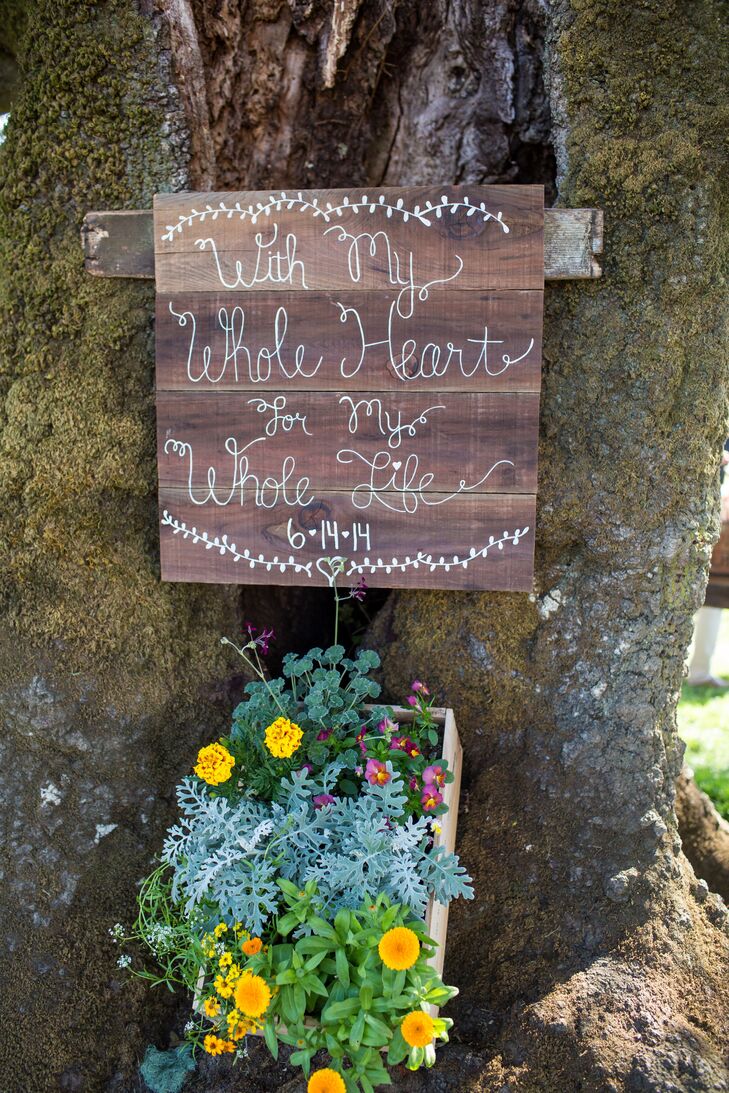 With My
Whole Heart
For My
Whole Life
6♥14♥14